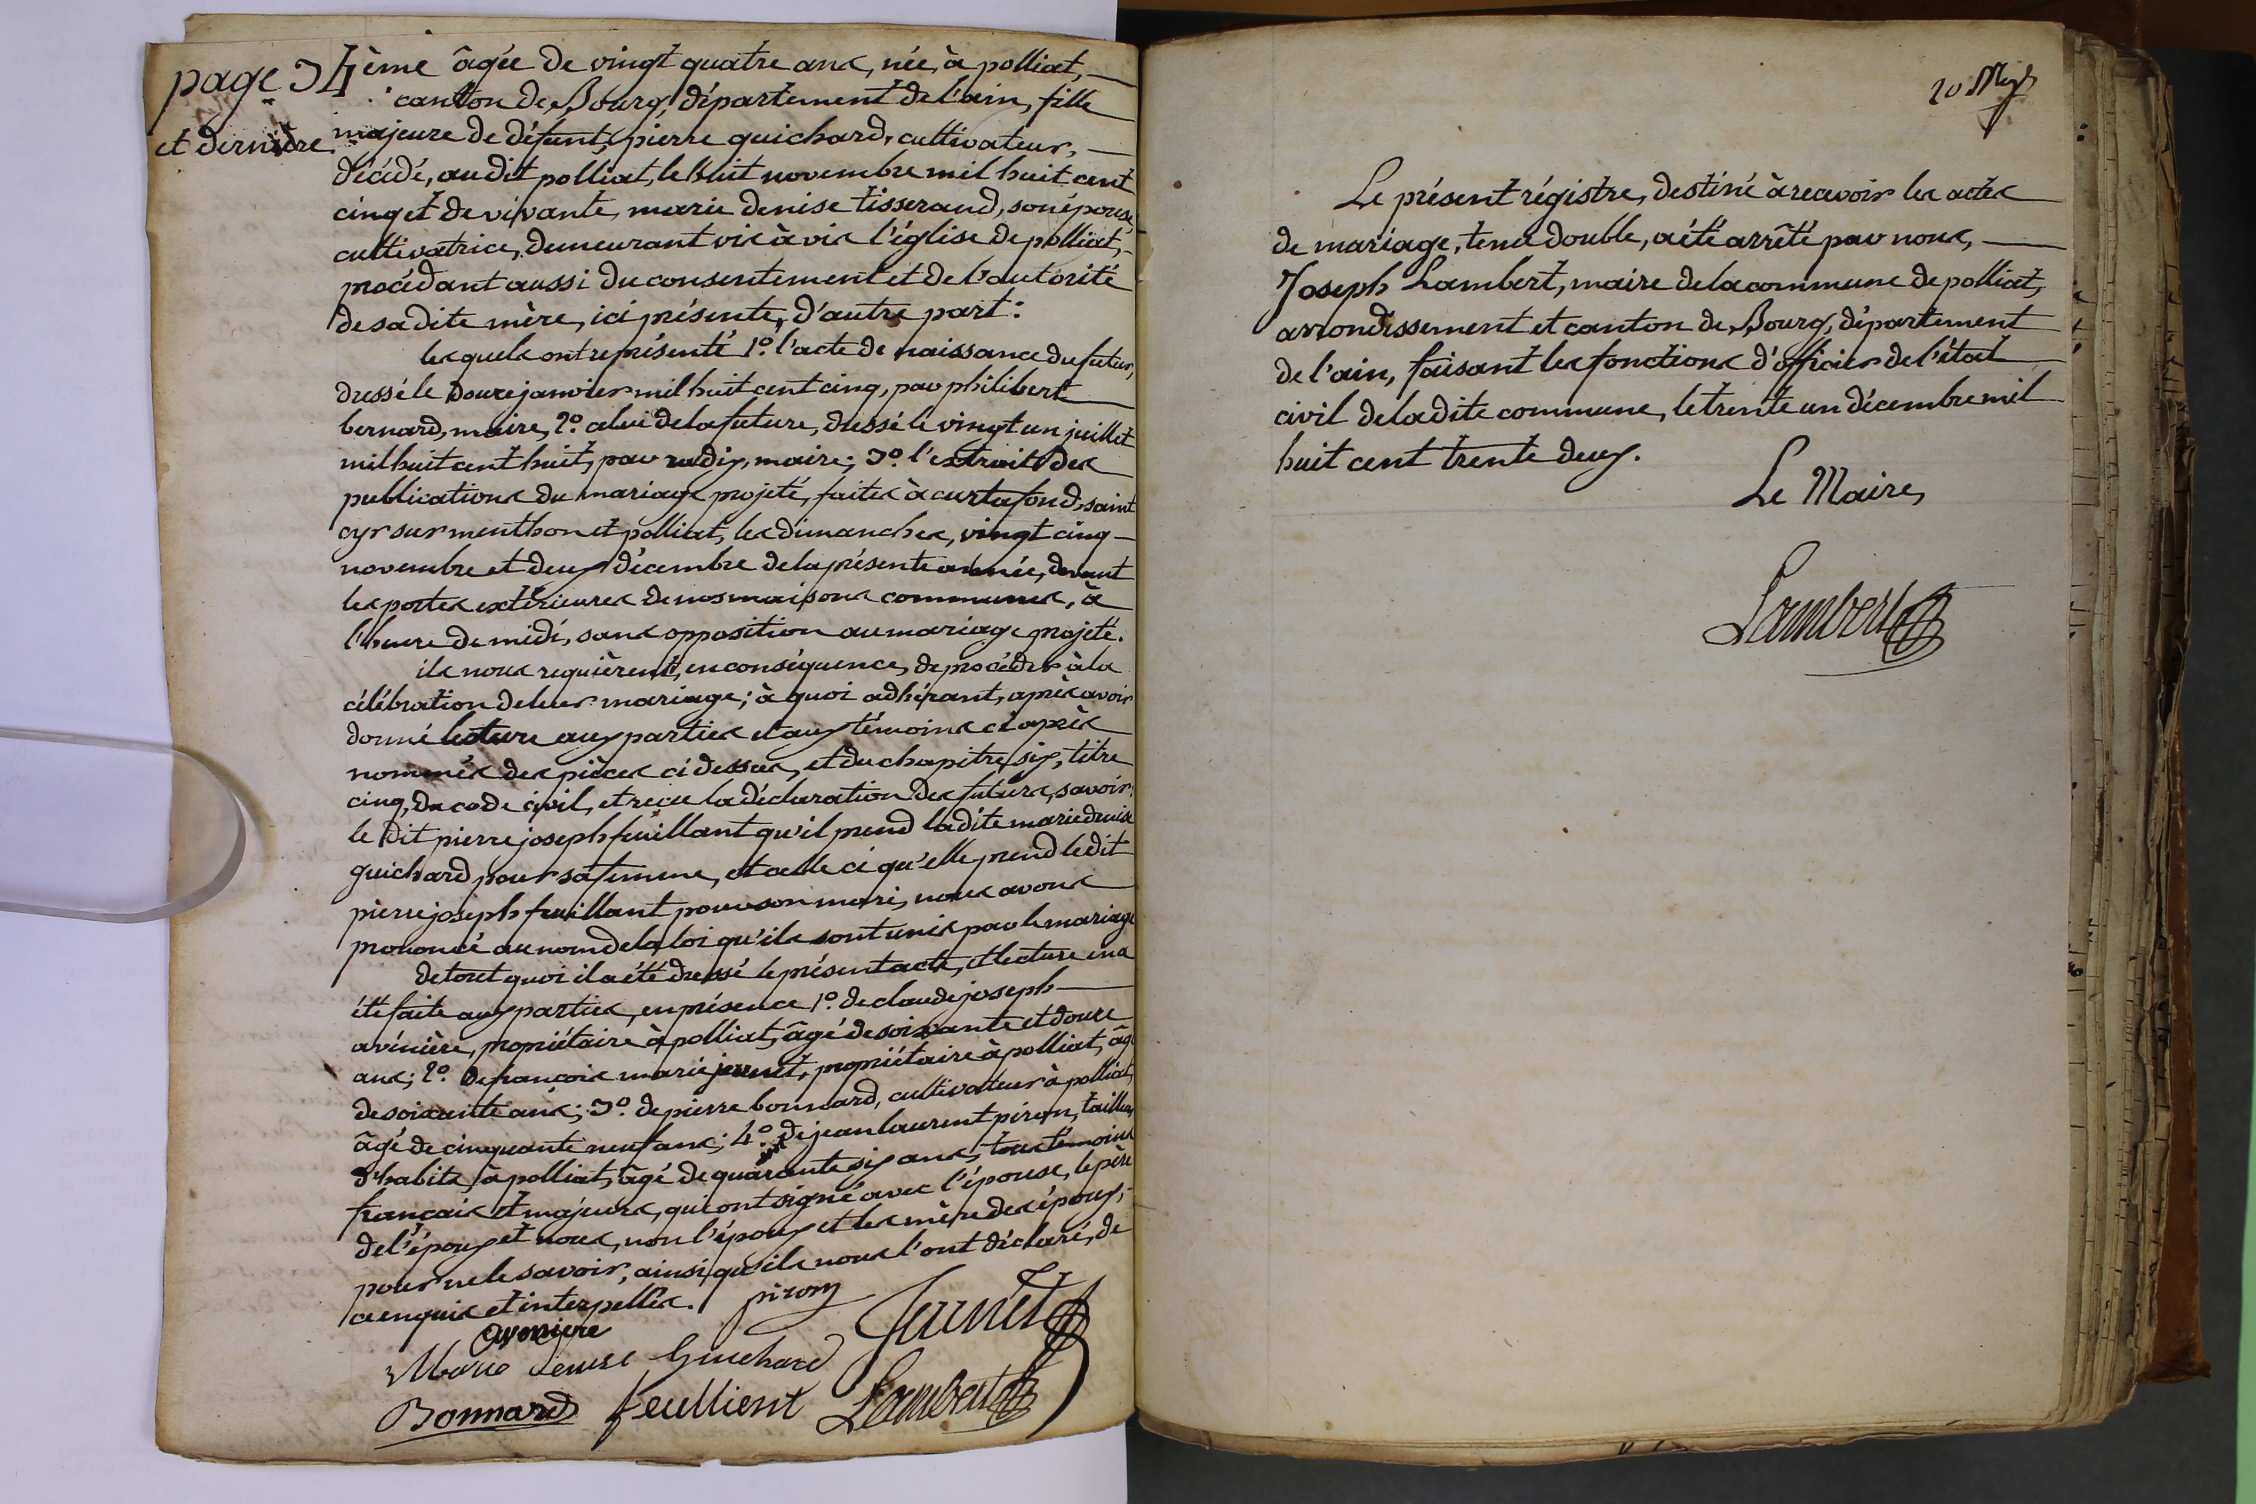 page 34ème
et dernière
âgée de vingt quatre ans, née à polliat,
canton de Bourg, département de l'ain, fille
majeure de défunt, pierre guichard, cultivateur,
décédé, au dit polliat, le huit novembre mil huit cent
cinq et de vivante, marie denise tisserand, son épouse
cultivatrice, demeurant vis à vis l'église de polliat,
procédant aussi du consentement et de l'autorité
de sa dite mère, ici présente, d'autre part:
lesquels ont représenté 1.º l'acte de naissance du futur,
dressé le douze janvier mil huit cent cinq, par philibert
bernard, maire, 2.º celui de la future, dressé le vingt un juillet
mil huit cent huit, par radix, maire; 3.º l'extrait des
publications du mariage projeté, faites à curtafond, saint
cyr sur menthon et polliat, les dimanches, vingt cinq
novembre et deux décembre de la présente année, devant
les portes extérieures de nos maisons communes, à
l'heure de midi, sans opposition au mariage projeté.
ils nous requièrent, en conséquence, de procéder à la
célébration de leur mariage; à quoi adhérant, après avoir
donné lecture aux parties et aux témoins ci après
nommés des pièces ci dessus, et du chapitre six, titre
cinq, du code civil, et reçu la déclaration des futurs, savoir:
le dit pierre joseph feuillant qu'il prend la dite marie denise
guichard pour sa femme, et celle ci qu'elle prend le dit
pierre joseph feuillant pour son mari, nous avons
prononcé au nom de la loi qu'ils sont unis par le mariage
de tout quoi il a été dressé le présent acte, et lecture en a
été faite aux parties, en présence 1.º de claude joseph
avenière, propriétaire à polliat, âgé de soixante et douze
ans; 2.º de françois marie jeunet, propriétaire à polliat, âgé
de soixante ans; 3.º de pierre bonnard, cultivateur à polliat,
âgé de cinquante neuf ans; 4.º de jean laurent piron, tailleur
d'habits, à polliat, âgé de quarante six ans, tous témoins
français et majeurs, qui ont signé avec l'épouse, le père
de l'époux et nous, non l'époux et les mère des époux,
pour ne le savoir, ainsi qu'ils nous l'ont déclaré, de
ce enquis et interpellés. piron
avenière Jeunet
Marie denise Guichard
Bonnard feullient Lambert
Le présent régistre, destiné à recevoir les actes
de mariage, tenu double, a été arrêté par nous,
Joseph Lambert, maire de la commune de polliat,
arrondissement et canton de Bourg, département
de l'ain, faisant les fonctions d'officier de l'état
civil de la dite commune, le trente un décembre mil
huit cent trente deux.
Le Maire,
Lambert